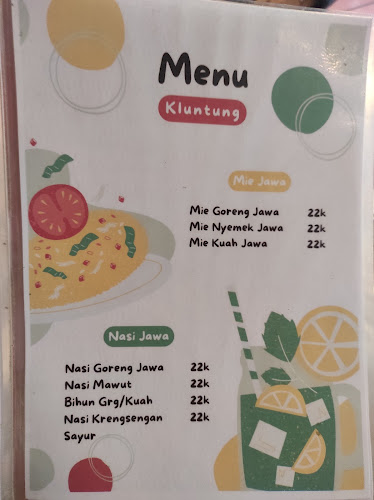 Menu
Kluntung
Mie Jawa
Mie Goreng Jawa 22k
Mie Nyemek Jawa 22k
Mie Kuah Jawa 22k
Nasi Jawa
Nasi Goreng Jawa 22k
Nasi Mawut 22k
Bihun Grg/Kuah 22k
Nasi Krengsengan 22k
Sayur